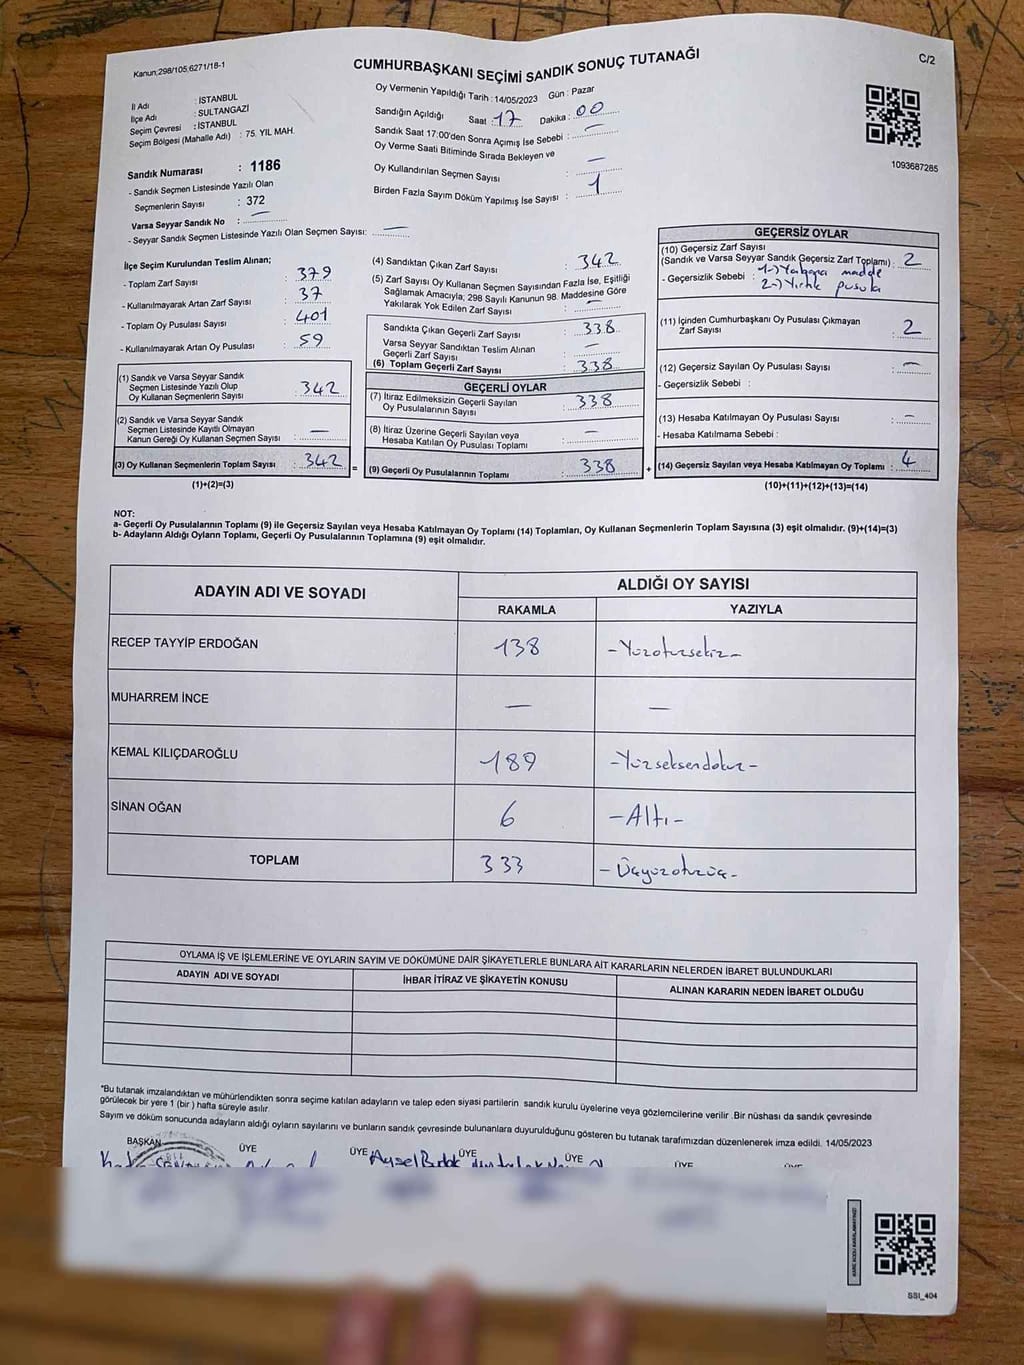 Kanun;298/105,6271/18-1
CUMHURBAŞKANI SEÇİMİ SANDIK SONUÇ TUTANAĞI
C/2
İl Adı : İSTANBUL
İlçe Adı : SULTANGAZİ
Seçim Çevresi : İSTANBUL
Seçim Bölgesi (Mahalle Adı) : 75. YIL MAH.
Sandık Numarası : 1186
- Sandık Seçmen Listesinde Yazılı Olan
Seçmenlerin Sayısı : 372
Varsa Seyyar Sandık No : —
- Seyyar Sandık Seçmen Listesinde Yazılı Olan Seçmen Sayısı: —
Oy Vermenin Yapıldığı Tarih : 14/05/2023 Gün : Pazar
Sandığın Açıldığı Saat : 17 Dakika : 00
Sandık Saat 17:00'den Sonra Açımış İse Sebebi : —
Oy Verme Saati Bitiminde Sırada Bekleyen ve
Oy Kullandırılan Seçmen Sayısı : —
Birden Fazla Sayım Döküm Yapılmış İse Sayısı : 1
1093687285
İlçe Seçim Kurulundan Teslim Alınan;
- Toplam Zarf Sayısı : 379
- Kullanılmayarak Artan Zarf Sayısı : 37
- Toplam Oy Pusulası Sayısı : 401
- Kullanılmayarak Artan Oy Pusulası : 59
(1) Sandık ve Varsa Seyyar Sandık
Seçmen Listesinde Yazılı Olup
Oy Kullanan Seçmenlerin Sayısı : 342
(2) Sandık ve Varsa Seyyar Sandık
Seçmen Listesinde Kayıtlı Olmayan
Kanun Gereği Oy Kullanan Seçmen Sayısı : —
(3) Oy Kullanan Seçmenlerin Toplam Sayısı : 342
(1)+(2)=(3)
(4) Sandıktan Çıkan Zarf Sayısı : 342
(5) Zarf Sayısı Oy Kullanan Seçmen Sayısından Fazla İse, Eşitliği
Sağlamak Amacıyla; 298 Sayılı Kanunun 98. Maddesine Göre
Yakılarak Yok Edilen Zarf Sayısı : —
Sandıkta Çıkan Geçerli Zarf Sayısı : 338
Varsa Seyyar Sandıktan Teslim Alınan
Geçerli Zarf Sayısı : —
(6) Toplam Geçerli Zarf Sayısı : 338
GEÇERLİ OYLAR
(7) İtiraz Edilmeksizin Geçerli Sayılan
Oy Pusulalarının Sayısı : 338
(8) İtiraz Üzerine Geçerli Sayılan veya
Hesaba Katılan Oy Pusulası Toplamı : —
= (9) Geçerli Oy Pusulalarının Toplamı : 338
GEÇERSİZ OYLAR
(10) Geçersiz Zarf Sayısı
(Sandık ve Varsa Seyyar Sandık Geçersiz Zarf Toplamı) : 2
- Geçersizlik Sebebi : 1-) Yabancı madde
2-) Yırtık pusula
(11) İçinden Cumhurbaşkanı Oy Pusulası Çıkmayan
Zarf Sayısı : 2
(12) Geçersiz Sayılan Oy Pusulası Sayısı : —
- Geçersizlik Sebebi :
(13) Hesaba Katılmayan Oy Pusulası Sayısı : —
- Hesaba Katılmama Sebebi :
+ (14) Geçersiz Sayılan veya Hesaba Katılmayan Oy Toplamı : 4
(10)+(11)+(12)+(13)=(14)
NOT:
a- Geçerli Oy Pusulalarının Toplamı (9) ile Geçersiz Sayılan veya Hesaba Katılmayan Oy Toplamı (14) Toplamları, Oy Kullanan Seçmenlerin Toplam Sayısına (3) eşit olmalıdır. (9)+(14)=(3)
b- Adayların Aldığı Oyların Toplamı, Geçerli Oy Pusulalarının Toplamına (9) eşit olmalıdır.
ADAYIN ADI VE SOYADI ALDIĞI OY SAYISI
RAKAMLA YAZIYLA
RECEP TAYYİP ERDOĞAN 138 -Yüzotuzsekiz-
MUHARREM İNCE — —
KEMAL KILIÇDAROĞLU 189 -Yüzseksendokuz-
SİNAN OĞAN 6 -Altı-
TOPLAM 333 -Üçyüzotuzüç-
OYLAMA İŞ VE İŞLEMLERİNE VE OYLARIN SAYIM VE DÖKÜMÜNE DAİR ŞİKAYETLERLE BUNLARA AİT KARARLARIN NELERDEN İBARET BULUNDUKLARI
ADAYIN ADI VE SOYADI İHBAR İTİRAZ VE ŞİKAYETİN KONUSU ALINAN KARARIN NEDEN İBARET OLDUĞU
*Bu tutanak imzalandıktan ve mühürlendikten sonra seçime katılan adayların ve talep eden siyasi partilerin sandık kurulu üyelerine veya gözlemcilerine verilir .Bir nüshası da sandık çevresinde
görülecek bir yere 1 (bir ) hafta süreyle asılır.
Sayım ve döküm sonucunda adayların aldığı oyların sayısını ve bunların sandık çevresinde bulunanlara duyurulduğunu gösteren bu tutanak tarafımızdan düzenlenerek imza edildi. 14/05/2023
BAŞKAN ÜYE ÜYE ÜYE ÜYE ÜYE
Aysel Budak
SSI_404